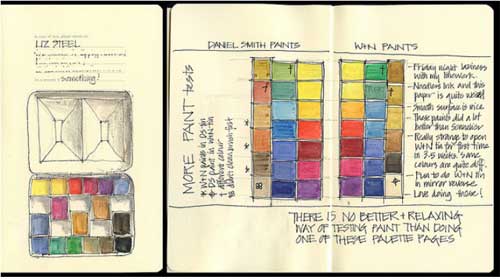 LIZ STEEL
something!
DANIEL SMITH PAINTS
W+N PAINTS
MORE PAINT tests
* W+N paints in DS tin
DS paint in W+N tin
colour
didn't clean brush first
- Friday night
with my linework.
- Noodlers ink and this
paper is quite
- Smooth surface is nice
- These paints did a lot
better than
- Really strange to open
W+N tin for first time
in 3.5 weeks. Some
colours are quite diff.
- Plan to do W+N tin
in mirror reverse
- Love doing these!
THERE IS NO BETTER + RELAXING
WAY OF TESTING PAINT THAN DOING
ONE OF THESE PALETTE PAGES